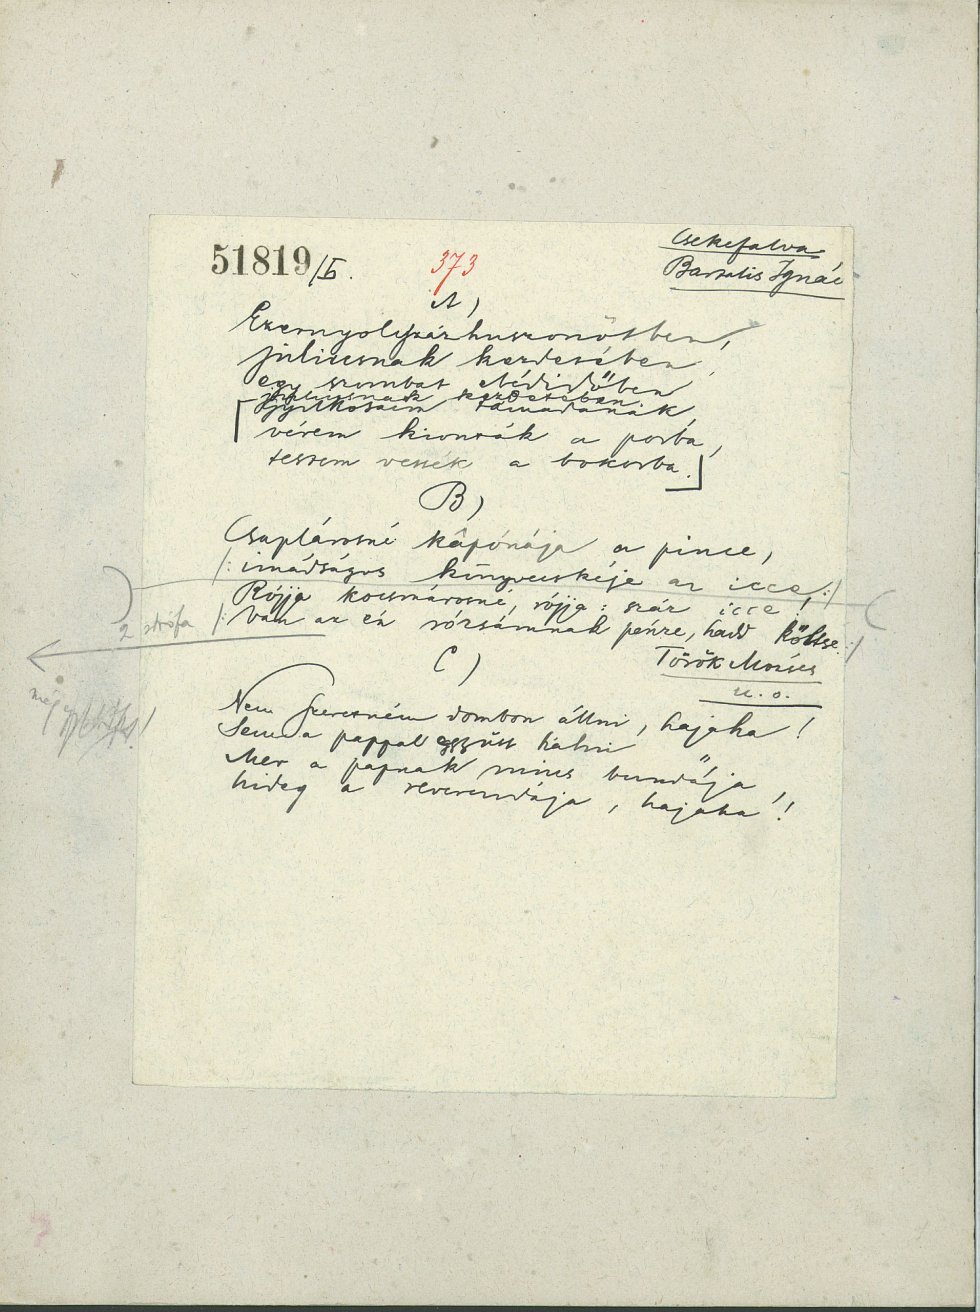 51819/b. 373 Csekefalva
Bartalis Ignác
A)
Ezernyolcszázhuszonötben,
júliusnak kezdetében,
egy szombat ebédidőben
júliusnak kezdetében.
gyilkosaim támadának,
vérem kionták a porba,
testem vessék a bokorba.
B)
Csaplárosné kápónája a pince,
/: imádságos könyvecskéje az icce, :/
Rójja kocsmárosné, rójja: száz icce,
/: Van az én rózsámnak pénze, hadd költse :/
2 strófa
Török Mózes
u. o.
még
C)
Nem szeretném dombon állni, hajaha!
Sem a pappal együtt hálni
Mer a papnak nincs bundája,
hideg a reverendája, hajaha!!